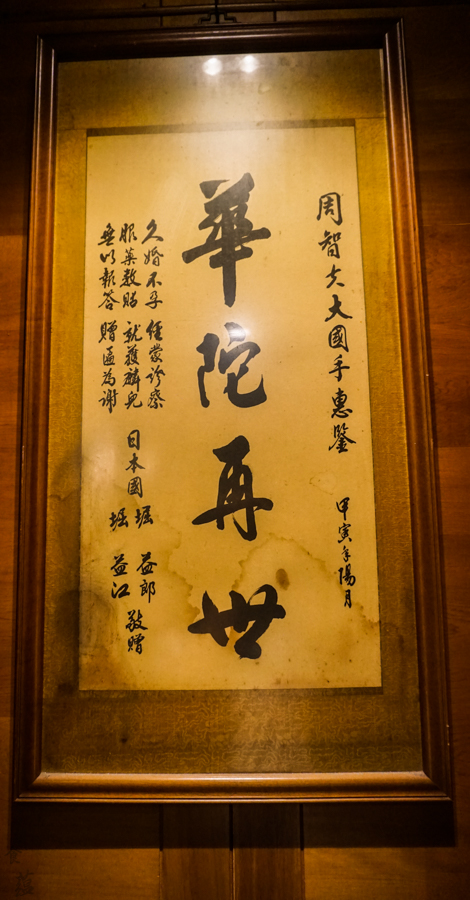 周智夫大國手惠鑒
甲寅年陽月
華陀再世
久婚不孕 經蒙診察
服藥數貼 就獲麟兒
無以報答 贈匾為謝
日本國堀 益郎
堀 益江
敬贈